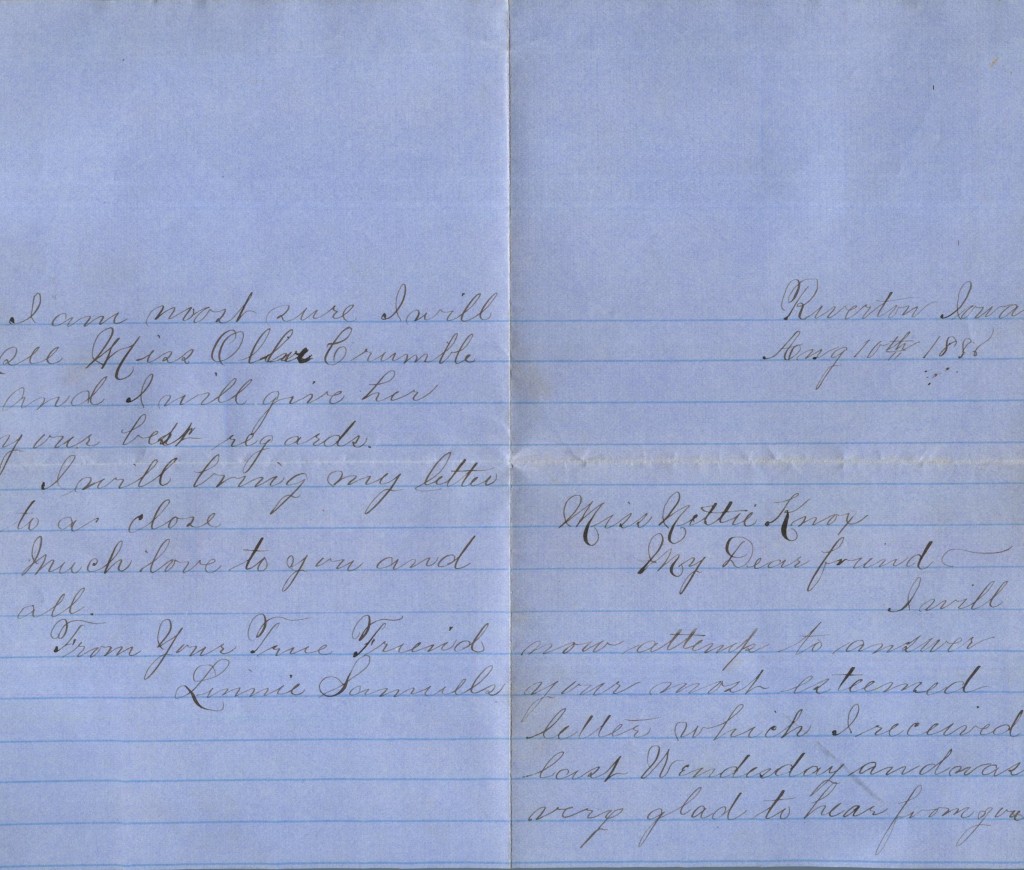 I am moost sure I will
see Miss Ollie Crumble
and I will give her
your best regards.
I will bring my letter
to a close
Much love to you and
all.
From Your True Friend
Linnie Samuells
Riverton Iowa
Aug 10th 1886
Miss Nettie Knox
My Dear friend
I will
now attemp to answer
your most esteemed
letter which I received
last Wendesday and was
very glad to hear from you